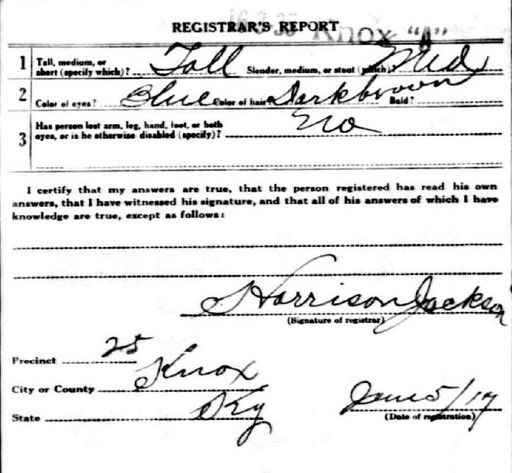 REGISTRAR'S REPORT
Knox "A"
1 Tall, medium, or short (specify which)? Tall Slender, medium, or stout (which)? Med
2 Color of eyes? Blue Color of hair? Dark brown Bald?
3 Has person lost arm, leg, hand, foot, or both eyes, or is he otherwise disabled (specify)? No
I certify that my answers are true, that the person registered has read his own
answers, that I have witnessed his signature, and that all of his answers of which I have
knowledge are true, except as follows:
Harrison Jackson
(Signature of registrar)
Precinct 25
City or County Knox
State Ky June 5/17
(Date of registration)